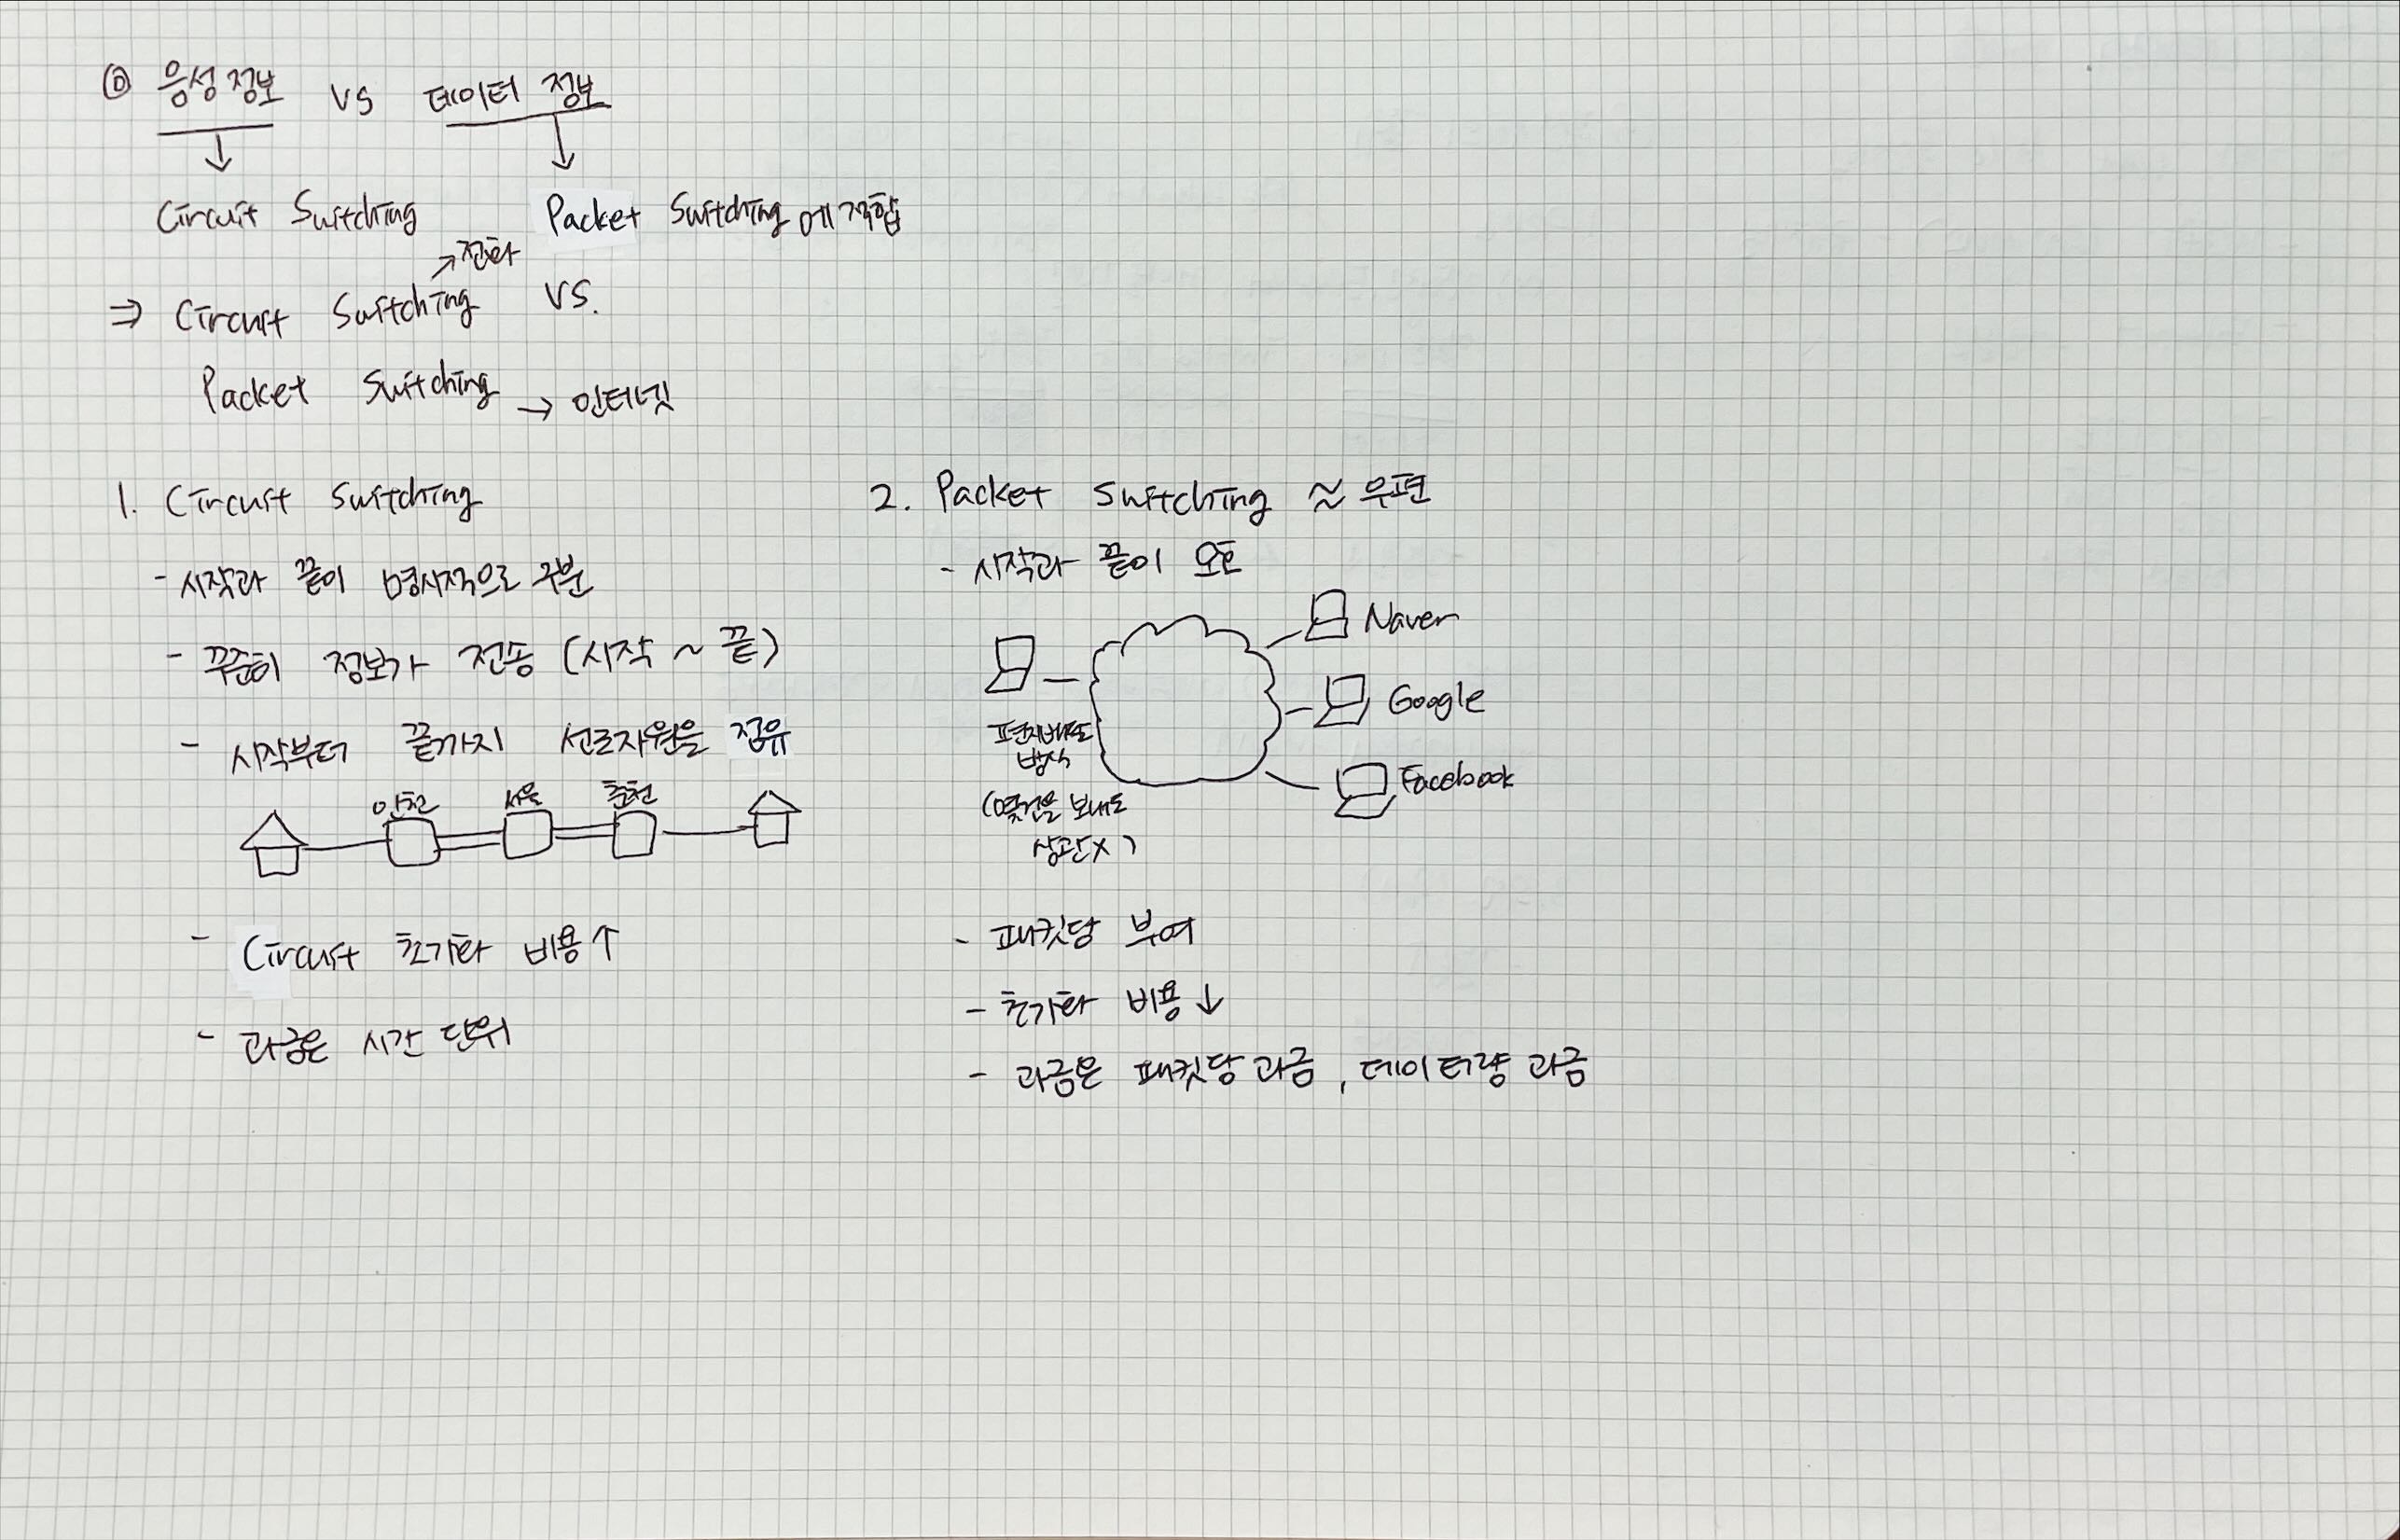 ◎ 음성정보 vs 데이터 정보
↓ ↓
Circuit Switching Packet Switching에 적합
→ 전화
⇒ Circuit Switching vs.
Packet Switching → 인터넷
1. Circuit Switching
- 시작과 끝이 명시적으로 구분
- 꾸준히 정보가 전송 (시작 ~ 끝)
- 시작부터 끝까지 선로자원을 점유
인천 서울 춘천
- Circuit 초기화 비용 ↑
- 과금은 시간 단위
2. Packet Switching ≈ 우편
- 시작과 끝이 모호
Naver
Google
편지배도
방식
Facebook
(몇건을 보내도
상관X)
- 패킷당 부여
- 초기화 비용 ↓
- 과금은 패킷당 과금, 데이터량 과금